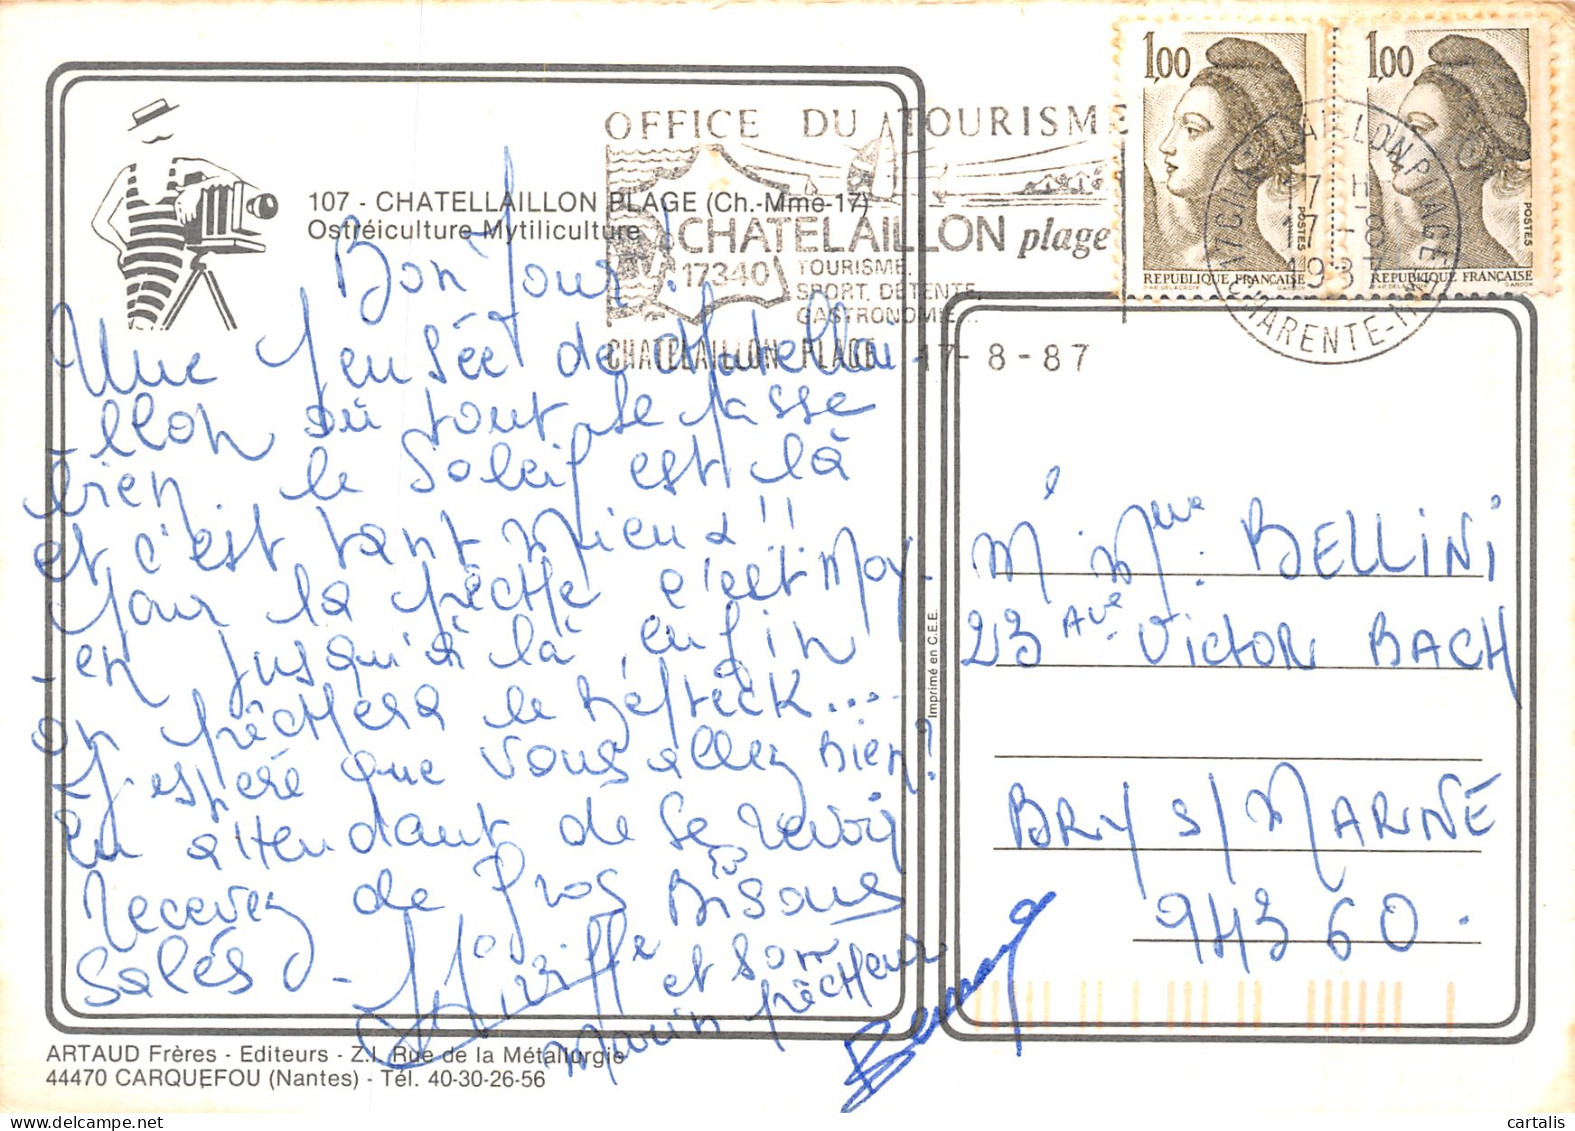 1,00
1,00
REPUBLIQUE FRANÇAISE
POSTES
REPUBLIQUE FRANÇAISE
POSTES
GANDON
17 H
17-8
1987
CHARENTE-M
OFFICE DU TOURISME
CHATELAILLON plage
17340
TOURISME.
SPORT. DETENTE.
GASTRONOMIE...
CHATELAILLON PLAGE 17-8-87
107 - CHATELLAILLON PLAGE (Ch.-Mme-17)
Ostréiculture Mytiliculture
Bonjour!
Une pensée de Chatellai
-llon où tout se passe
bien. le soleil est là
et c'est tant mieux!!
Pour la pêche c'est moy-
-en jusqu'à là, enfin
on pêchera le befteck...
J'espère que vous allez bien?
En attendant de se revoir
recevez de gros Bisous
salés -
et son
marin pêcheur
Imprimé en C.E.E.
M. Mme. BELLINI
23 Ave Victor BACH
BRY S/ MARNE
94360.
ARTAUD Frères - Editeurs - Z.I. Rue de la Métallurgie
44470 CARQUEFOU (Nantes) - Tél. 40-30-26-56